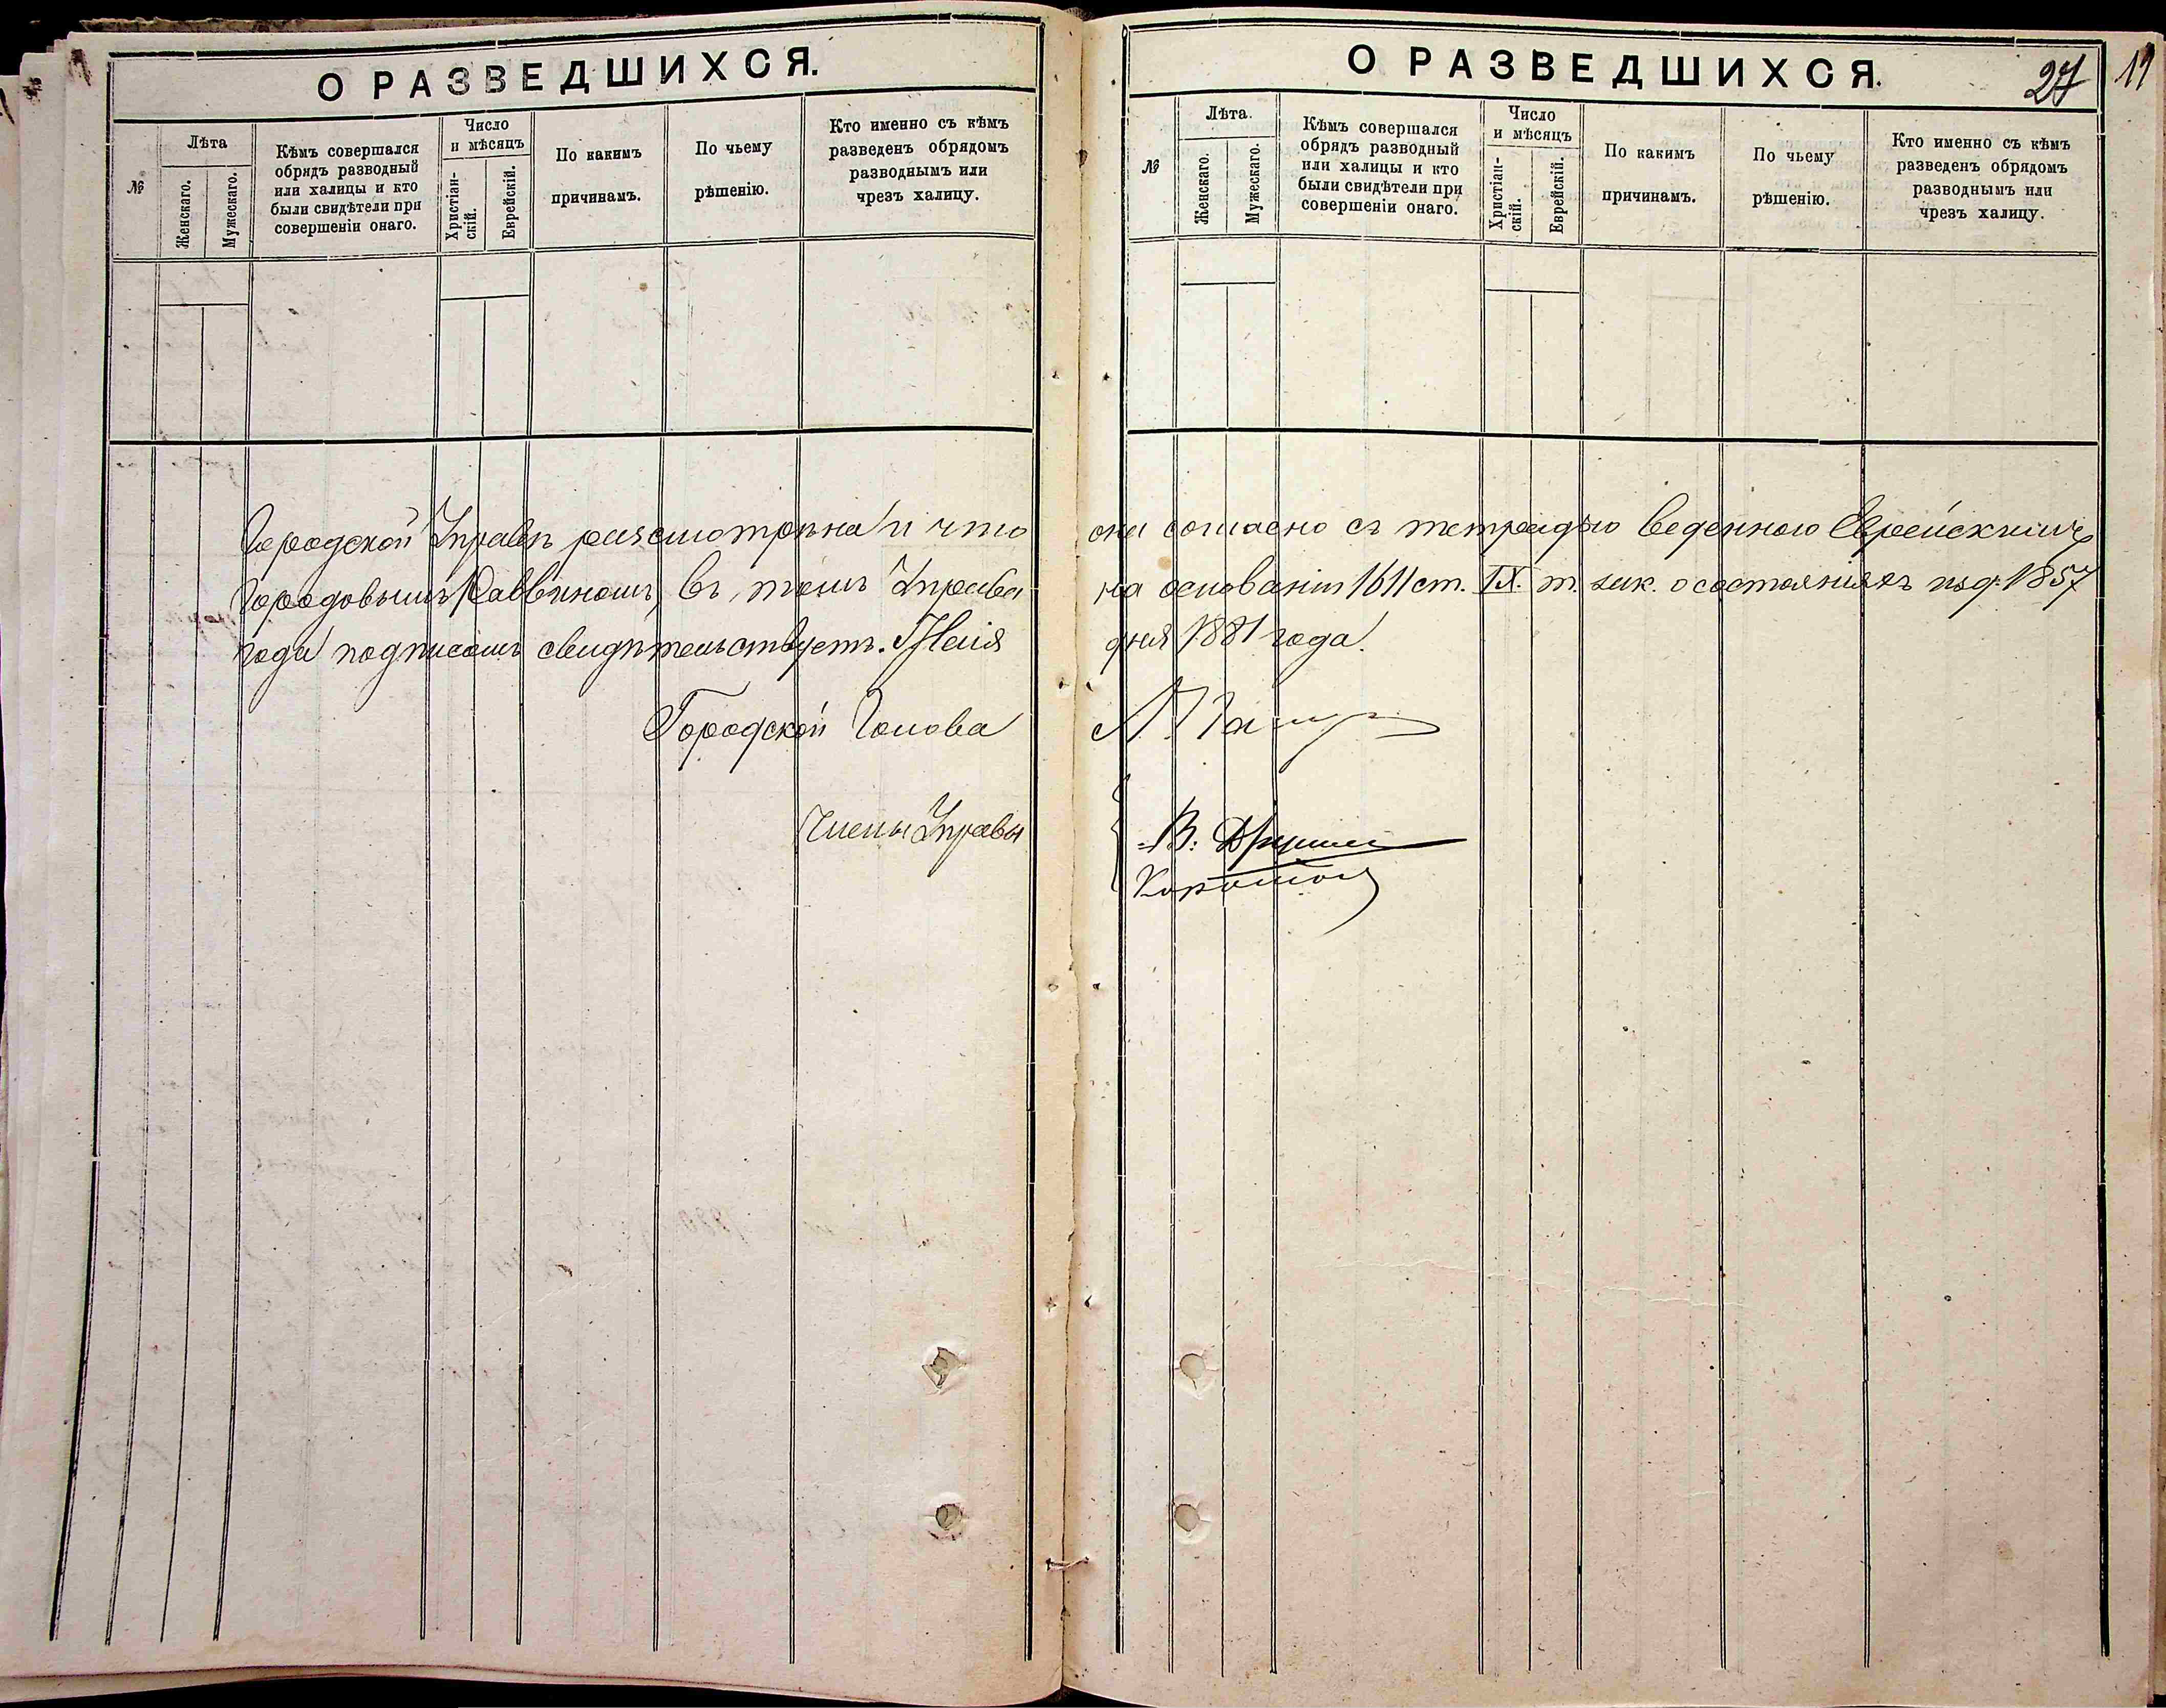 О РАЗВЕДШИХСЯ.
№
Лѣта
Женскаго.
Мужескаго.
Кѣмъ совершался
обрядъ разводный
или халицы и кто
были свидѣтели при
совершеніи онаго.
Число
и мѣсяцъ
Христіан-
скій.
Еврейскій.
По какимъ
причинамъ.
По чьему
рѣшенію.
Кто именно съ кѣмъ
разведенъ обрядомъ
разводнымъ или
чрезъ халицу.
Городской Управѣ разсмотрѣна и что
Городовымъ Раввиномъ, въ томъ Управа
года подписомъ свидѣтельствуетъ.
Городской Голова
Члены Управы
О РАЗВЕДШИХСЯ.
27
19
№
Лѣта.
Женскаго.
Мужескаго.
Кѣмъ совершался
обрядъ разводный
или халицы и кто
были свидѣтели при
совершеніи онаго.
Число
и мѣсяцъ
Христіан-
скій.
Еврейскій.
По какимъ
причинамъ.
По чьему
рѣшенію.
Кто именно съ кѣмъ
разведенъ обрядомъ
разводнымъ или
чрезъ халицу.
она согласно съ тетрадью веденною Еврейскимъ
на основаніи 1611 ст. IX. т. зак. о состояніяхъ изд. 1857
дня 1881 года.
В.